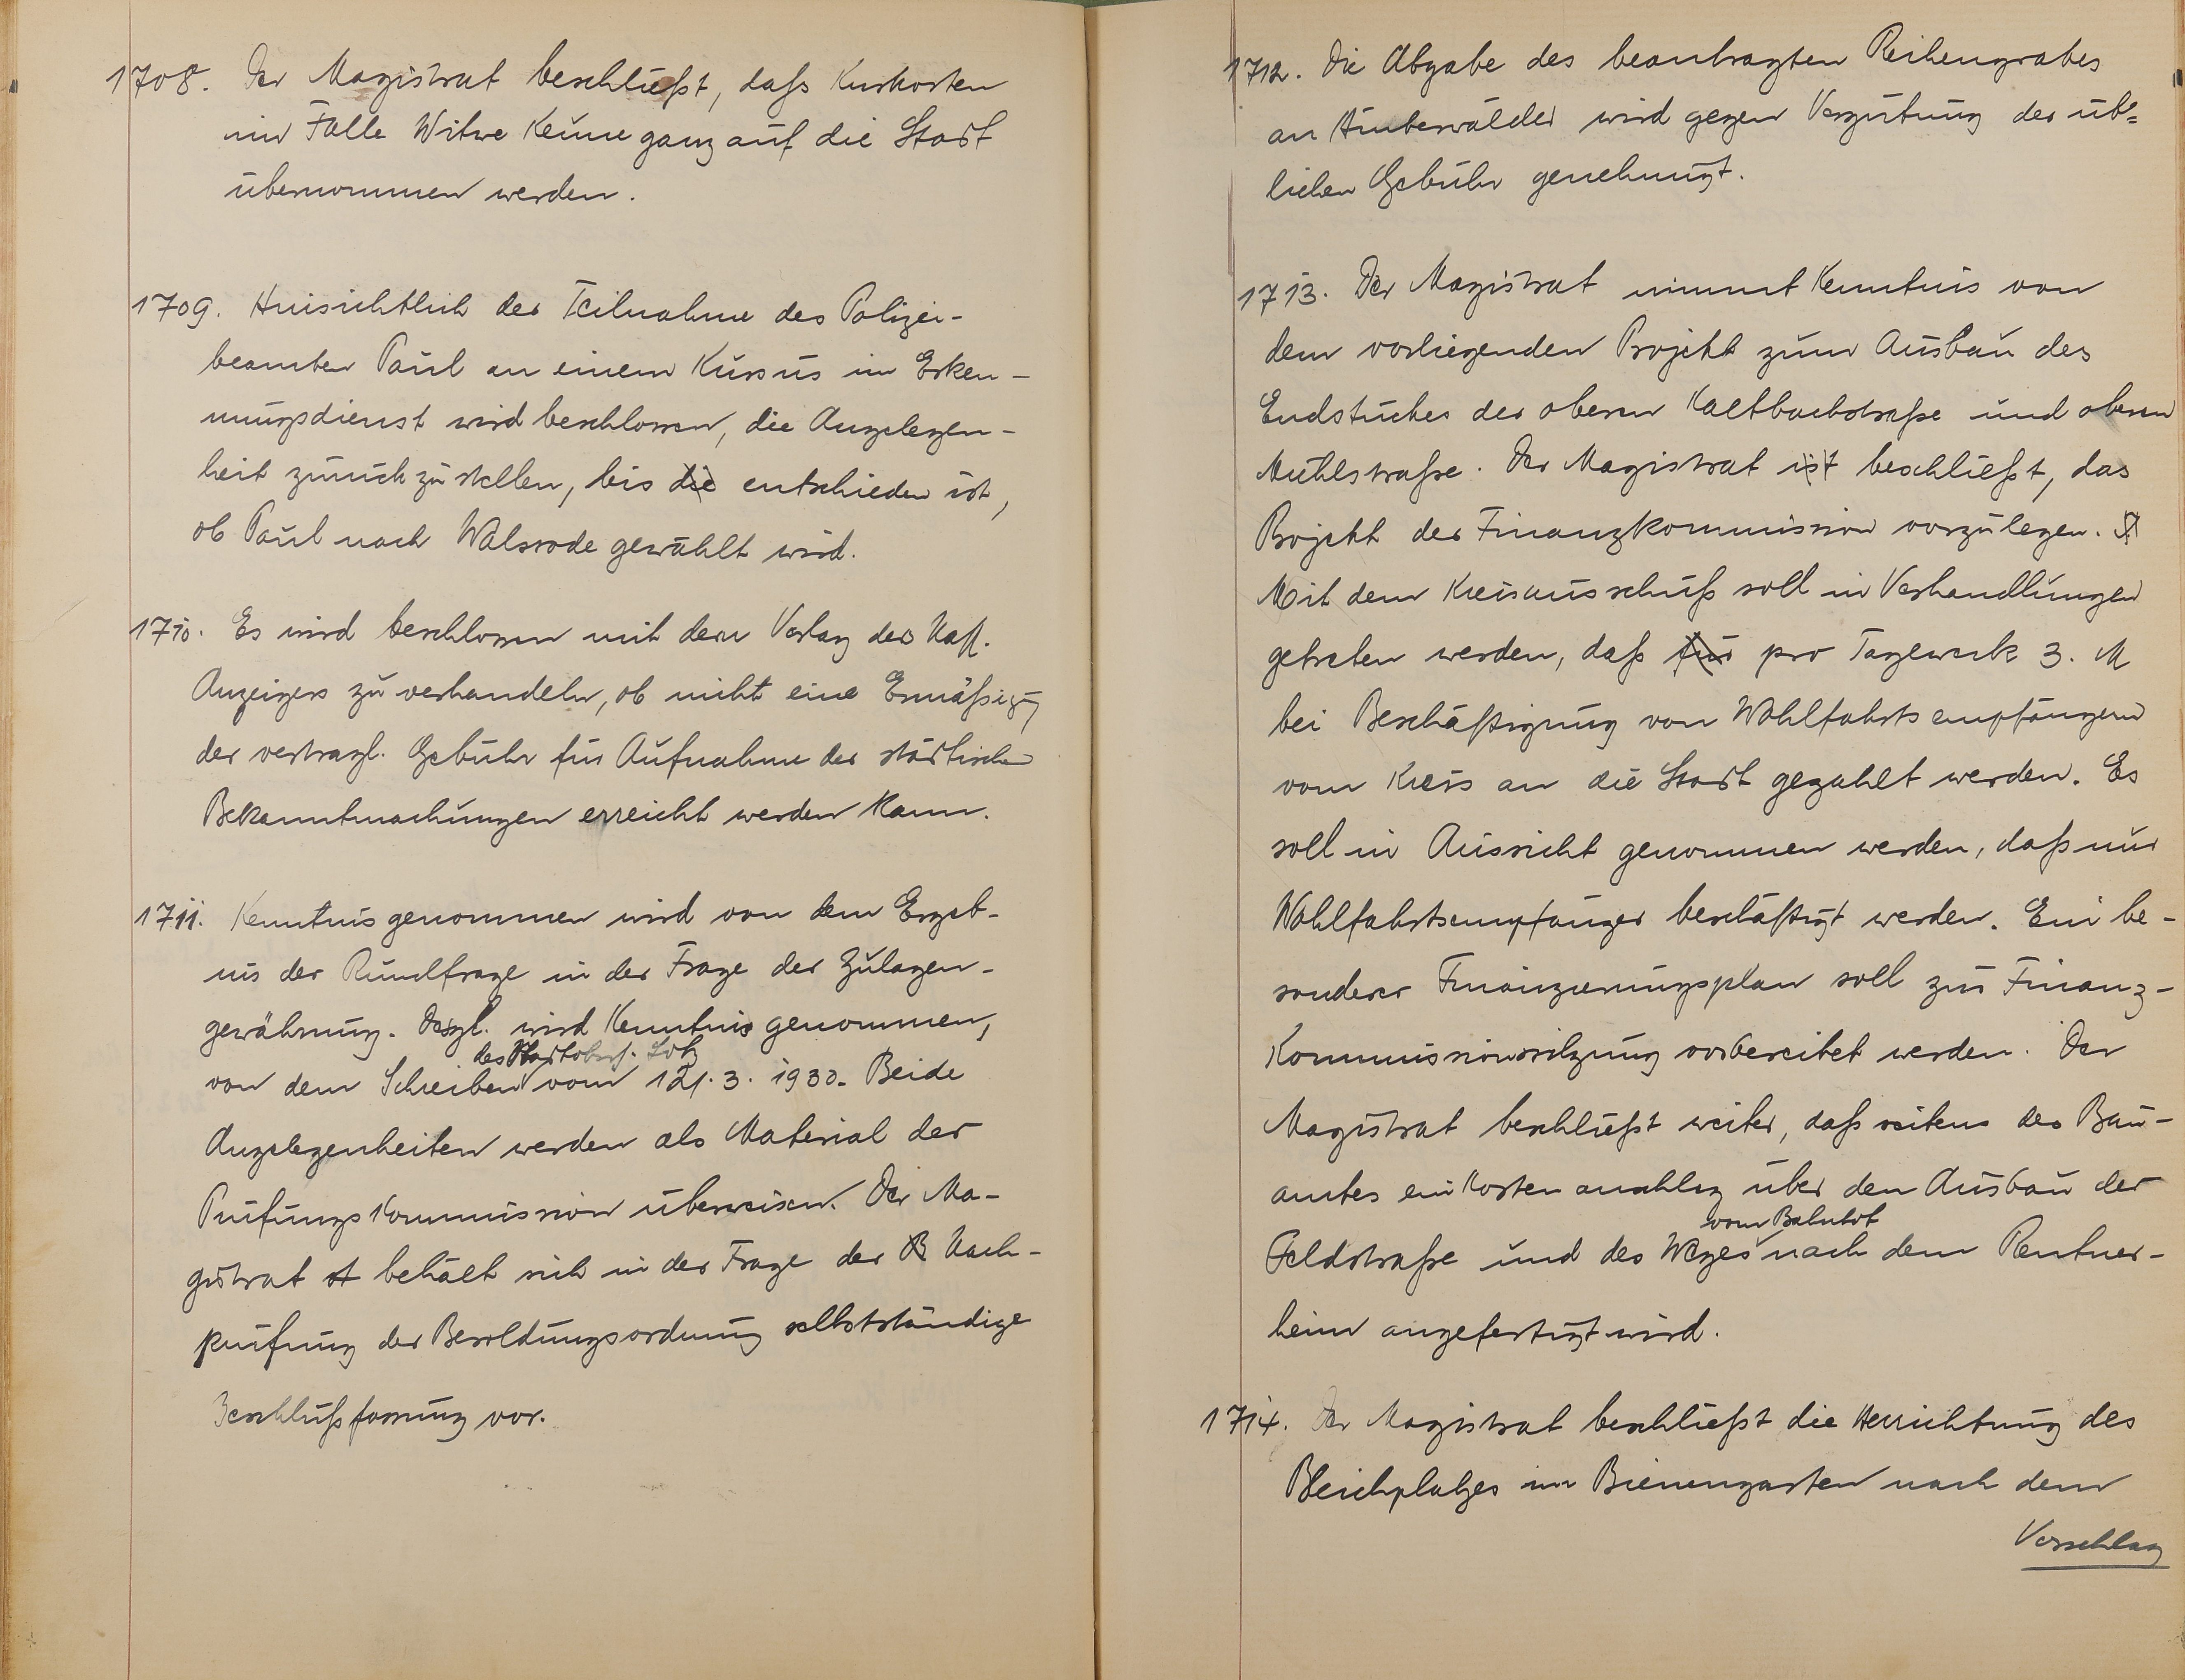 1708. Der Magistrat beschließt, daß Kurkosten
im Falle Witwe Keune ganz auf die Stadt
übernommen werden.
1709. Hinsichtlich der Teilnahme des Polizei-
beamten Paul an einem Kursus im Erken-
nungsdienst wird beschlossen, die Angelegen-
heit zurückzustellen, bis die entschieden ist,
ob Paul nach Walsrode gewählt wird.
1710. Es wird beschlossen mit dem Verlag des Nass.
Anzeigers zu verhandeln, ob nicht eine Ermäßigung
der vertragl. Gebühr für Aufnahme der städtischen
Bekanntmachungen erreicht werden kann.
1711. Kenntnis genommen wird von dem Ergeb-
nis der Rundfrage in der Frage der Zulagen-
gewährung. Desgl. wird Kenntnis genommen,
des Stadtobers. Lotz
von dem Schreiben vom 121.3.1930. Beide
Angelegenheiten werden als Material der
Prüfungskommission überwiesen. Der Ma-
gistrat st behält sich in der Frage der B Nach-
prüfung der Besoldungsordnung selbstständige
Beschlußfassung vor.
1712. Die Abgabe des beantragten Reihengrabes
an Hinterwälder wird gegen Vergütung der üb=
lichen Gebühr genehmigt.
1713. Der Magistrat nimmt Kenntnis von
dem vorliegenden Projekt zum Ausbau des
Endstückes der oberen Kaltbachstraße und oberen
Mühlstraße. Der Magistrat ist beschließt, das
Projekt der Finanzkommission vorzulegen.
Mit dem Kreisausschuß soll in Verhandlungen
getreten werden, daß für pro Tagewerk 3. M
bei Beschäftigung von Wohlfahrtsempfängern
vom Kreis an die Stadt gezahlt werden. Es
soll in Aussicht genommen werden, daß nur
Wohlfahrtsempfänger beschäftigt werden. Ein be-
sonderer Finanzierungsplan soll zur Finanz-
Kommissionssitzung vorbereitet werden. Der
Magistrat beschließt weiter, daß seitens des Bau-
amtes ein Kostenanschlag über den Ausbau der
vom Bahnhof
Feldstraße und des Weges nach dem Rentner-
heim angefertigt wird.
1714. Der Magistrat beschließt die Herrichtung des
Bleichplatzes im Bienengarten nach dem
Vorschlag